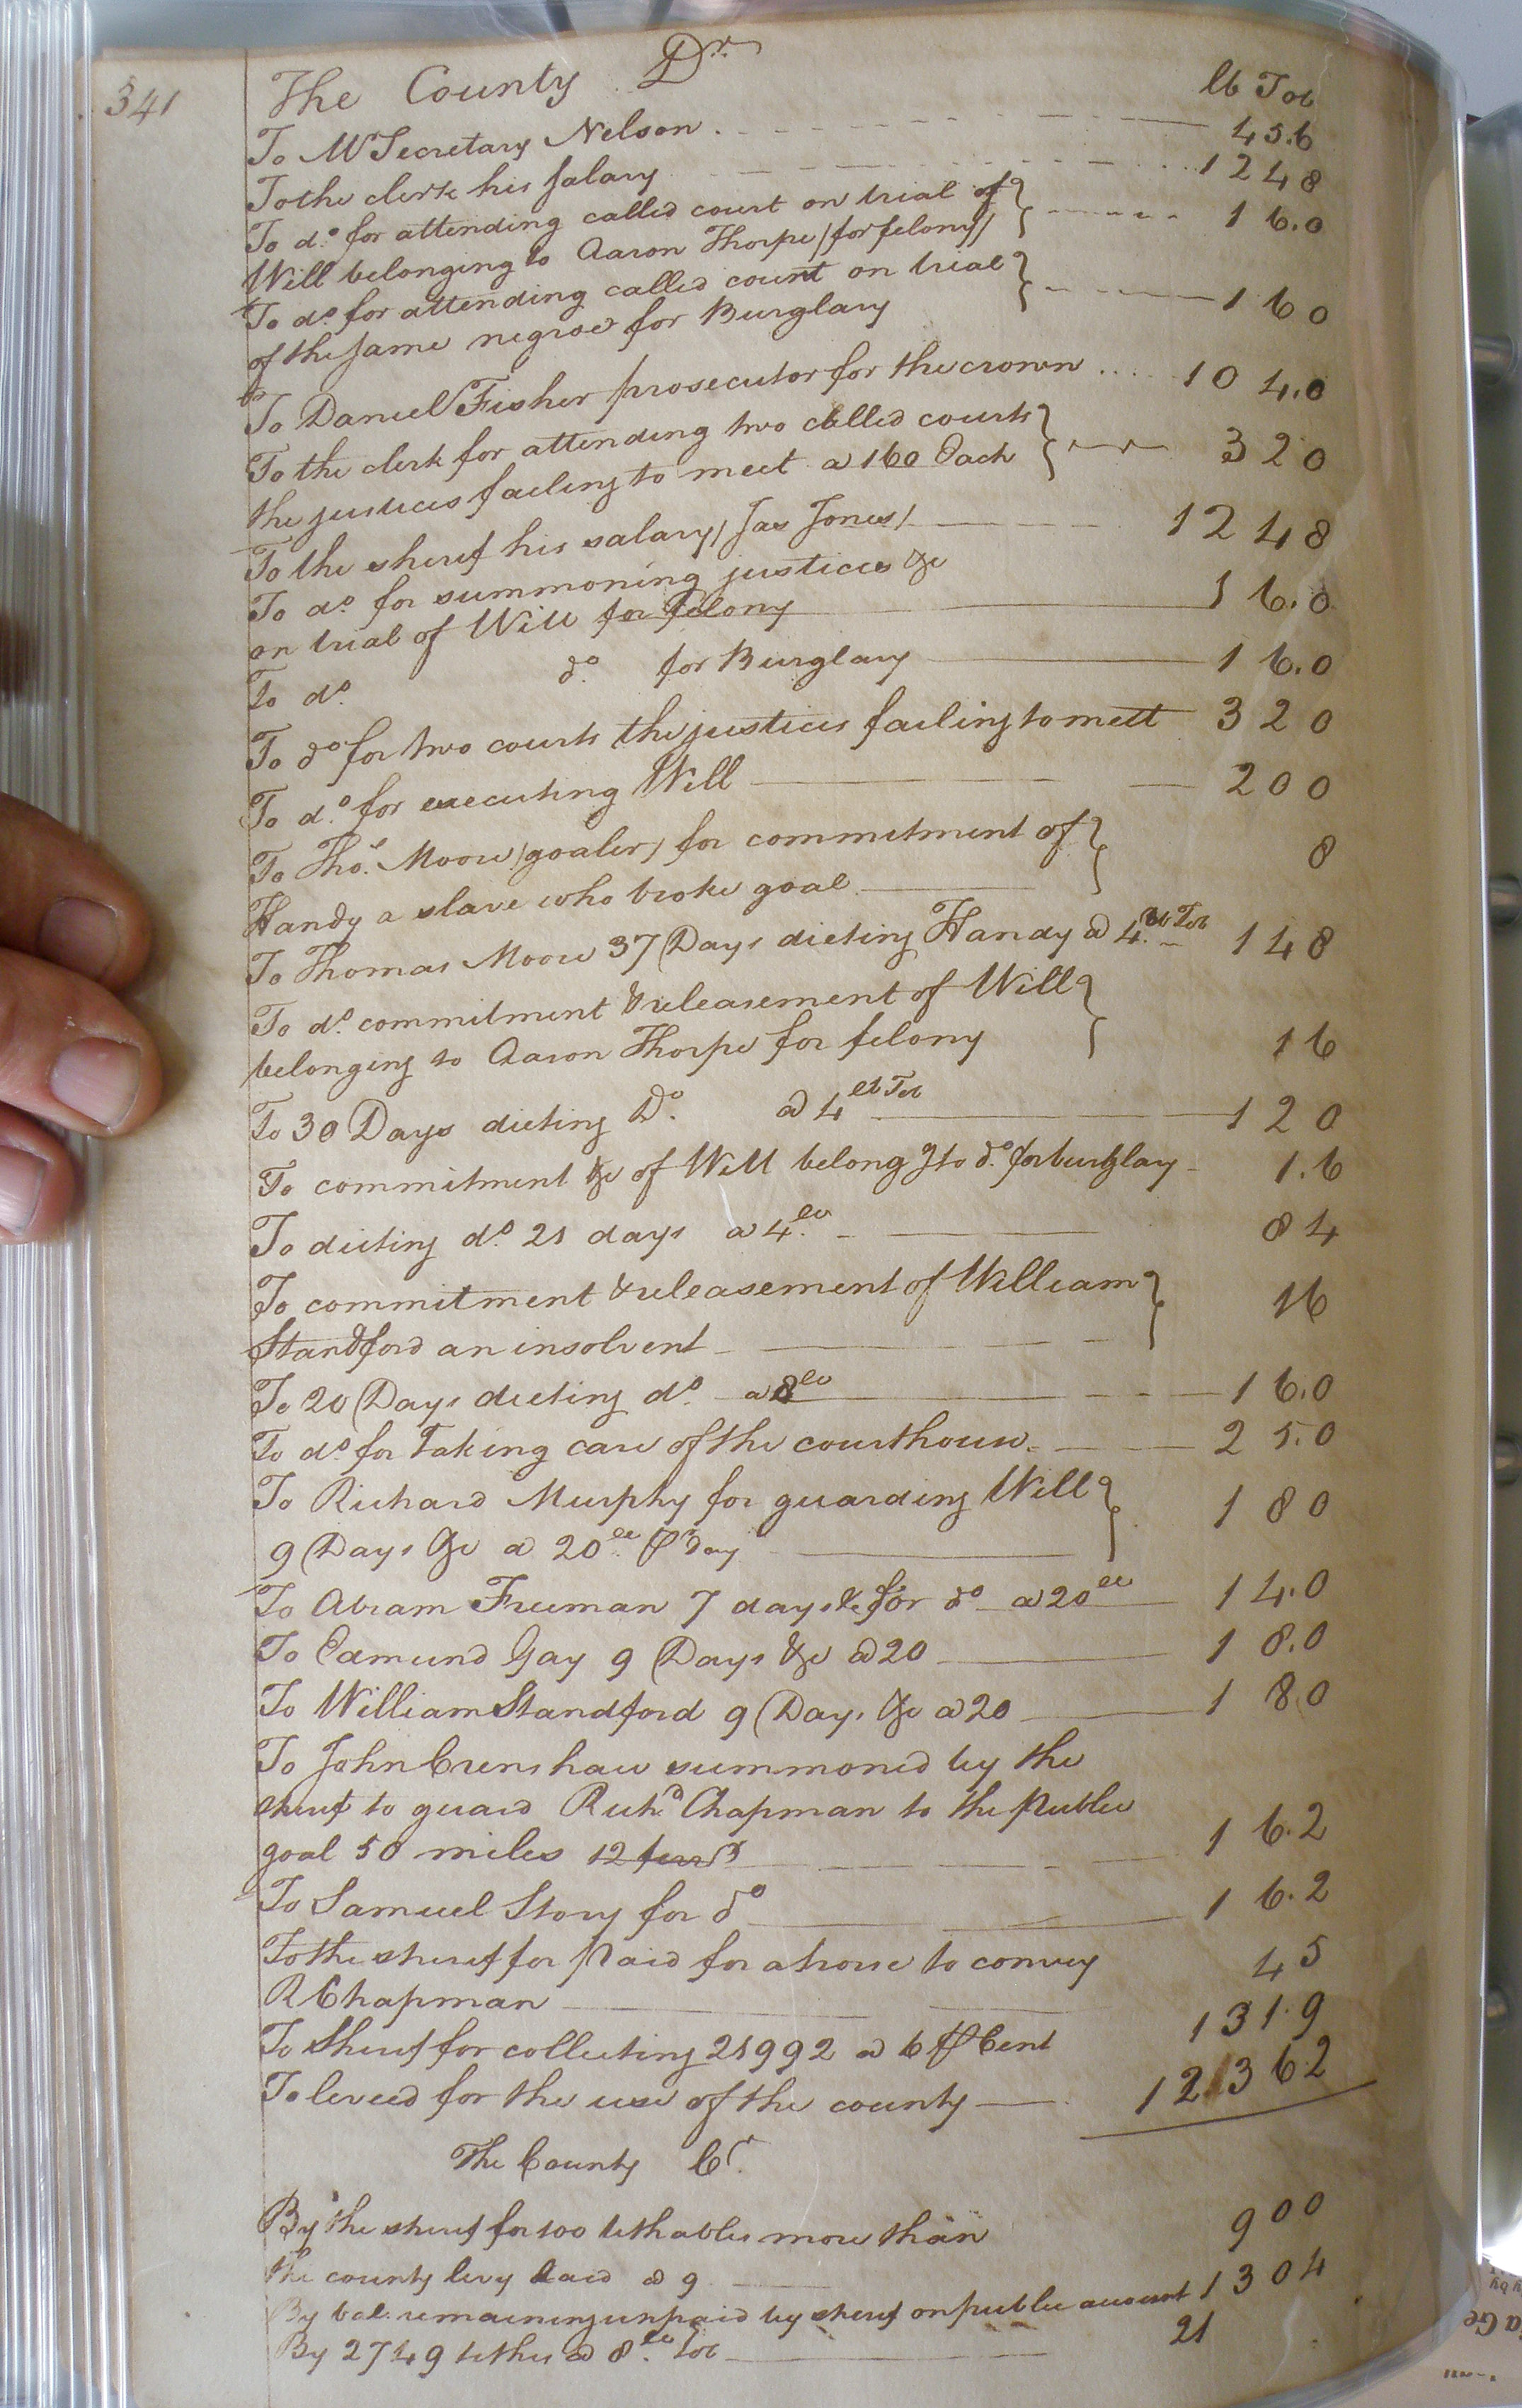 341
The County Dr.
lb Tob
To Mr Secretary Nelson 456
To the clerk his salary 1248
To do. for attending called court on trial of
Will belonging to Aaron Thorpe (for felony) 160
To do. for attending called court on trial
of the same negroe for Burglary 160
To Daniel Fisher prosecutor for the crown 1040
To the clerk for attending two called courts
the justices failing to meet a 160 Each 320
To the sherif his salary / Jas Jones / 1248
To do. for summoning justices &c
on trial of Will for Felony 160
To do. do. for Burglary 160
To do for two courts the justices failing to meet 320
To do. for executing Will 200
To Thos. Moore (goaler) for commitment of
Handy a slave who broke goal 8
To Thomas Moore 37 Days dieting Handy a 4 lb Tob 148
To do. commitment & releasement of Will
belonging to Aaron Thorpe for felony 16
To 30 Days dieting Do. a 4 lb Tob 120
To commitment &c of Will belong g to do. for burglary 16
To dieting do. 21 days a 4 lb 84
To commitment & releasement of William
Standford an insolvent 16
To 20 Days dieting do. a 8 lb 160
To do for Taking care of the courthouse 250
To Richard Murphy for guarding Will
9 Days &c a 20 lb pr day 180
To Abram Freeman 7 days &c for do a 20 lb 140
To Edmund Gay 9 Days &c a 20 180
To William Standford 9 Days &c a 20 180
To John Crenshaw summoned by the
sherif to guard Richd Chapman to the Publee
goal 50 miles 12 162
To Samuel Story for do 162
To the sherif for Paid for a horse to convey
R Chapman 45
To Sherif for collecting 21992 a 6 P Cent 1319
To levied for the use of the county 12362
The County Cr.
By the sherif for 100 tithables more than
the county levy Laid a 9 900
By bal. remaining unpaid by sherif on publee account 1304
By 2749 tithes a 8 lb Tob 21